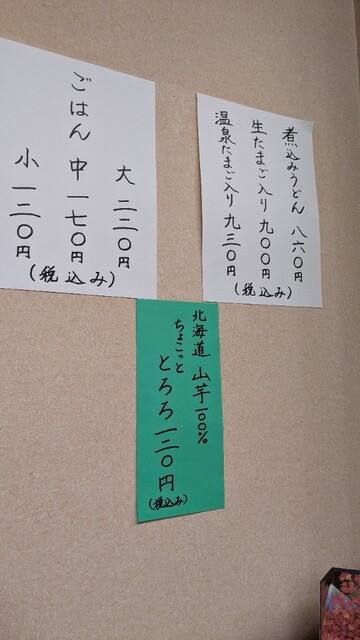 大 二二〇円
ごはん 中 一七〇円
小 一二〇円
(税込み)
煮込みうどん 八六〇円
生たまご入り 九〇〇円
温泉たまご入り 九三〇円
(税込み)
北海道 山芋一〇〇%
ちょこっと
とろろ 一二〇円
(税込み)